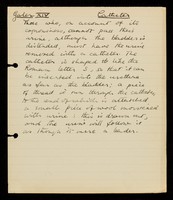 Galen XIV Catheter
Those who, on account of its
copiousness, cannot pass their
urine, although the bladder is
distended, must have the urine
removed with a catheter. The
catheter is shaped like the
Roman letter S, so that it can
be inserted into the urethra
as far as the bladder; a piece
of thread is run through the catheter,
to the end of which is attached
a small piece of wool moistened
with urine: this is drawn out,
and the urine will follow it
as though it were a leader.